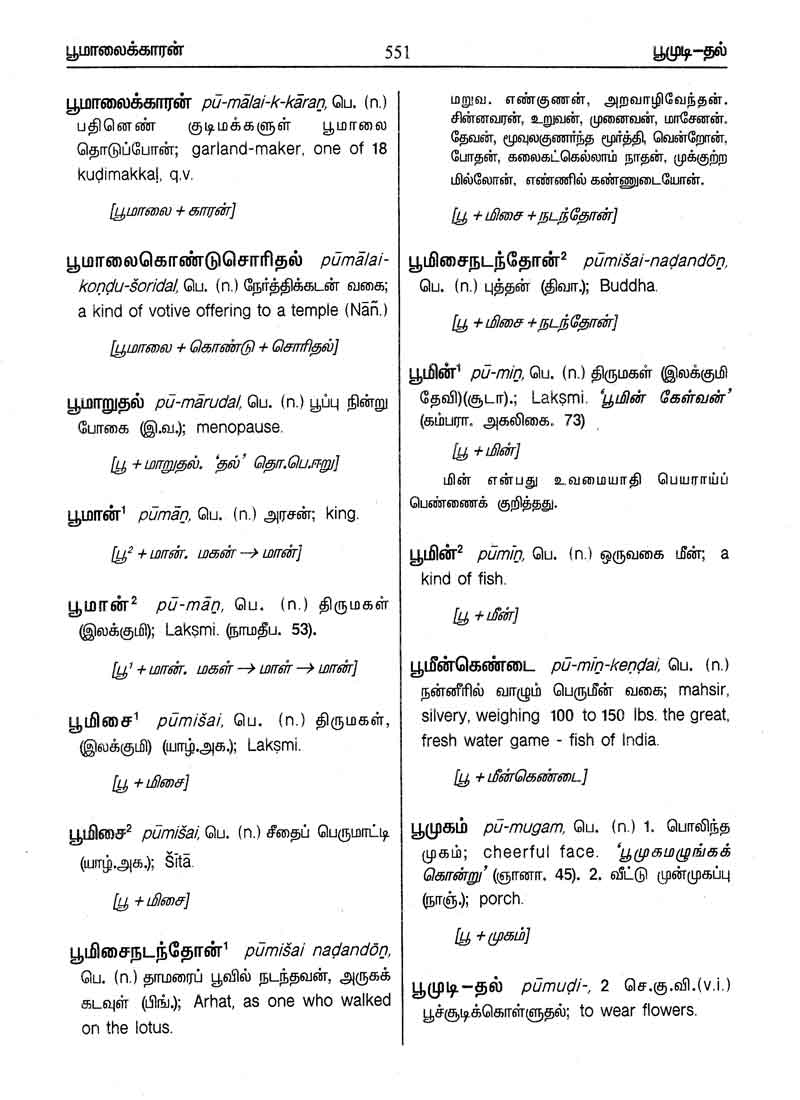 பூமாலைக்காரன்
551
பூமுடி-தல்
பூமாலைக்காரன் pū-mālai-k-kāraṉ, பெ. (n.)
பதினெண் குடிமக்களுள் பூமாலை
தொடுப்போன்; garland-maker, one of 18
kuḍimakkaḷ, q.v.
[பூமாலை + காரன்]
பூமாலைகொண்டுசொரிதல் pūmālai-
koṇḍu-šoridal, பெ. (n.) நேர்த்திக்கடன் வகை;
a kind of votive offering to a temple (Nāñ.)
[பூமாலை + கொண்டு + சொரிதல்]
பூமாறுதல் pū-mārudal, பெ. (n.) பூப்பு நின்று
போகை (இ.வ.); menopause.
[பூ + மாறுதல். ‘தல்’ தொ.பெ.ஈறு]
பூமான்¹ pūmāṉ, பெ. (n.) அரசன்; king.
[பூ² + மான். மகன் → மான்]
பூமான்² pū-māṉ, பெ. (n.) திருமகள்
(இலக்குமி); Lakṣmi. (நாமதீப. 53).
[பூ¹ + மான். மகள் → மாள் → மான்]
பூமிசை¹ pūmišai, பெ. (n.) திருமகள்,
(இலக்குமி) (யாழ்.அக.); Lakṣmi.
[பூ + மிசை]
பூமிசை² pūmišai, பெ. (n.) சீதைப் பெருமாட்டி
(யாழ்.அக.); Šītā.
[பூ + மிசை]
பூமிசைநடந்தோன்¹ pūmišai naḍandōṉ,
பெ. (n.) தாமரைப் பூவில் நடந்தவன், அருகக்
கடவுள் (பிங்.); Arhat, as one who walked
on the lotus.
மறுவ. எண்குணன், அறவாழிவேந்தன்.
சின்னவரன், உறுவன், முனைவன், மாசேனன்.
தேவன், மூவுலகுணர்ந்த மூர்த்தி, வென்றோன்,
போதன், கலைகட்கெல்லாம் நாதன், முக்குற்ற
மில்லோன், எண்ணில் கண்ணுடையோன்.
[பூ + மிசை + நடந்தோன்]
பூமிசைநடந்தோன்² pūmišai-naḍandōṉ,
பெ. (n.) புத்தன் (திவா.); Buddha.
[பூ + மிசை + நடந்தோன்]
பூமின்¹ pū-miṉ, பெ. (n.) திருமகள் (இலக்குமி
தேவி)(சூடா).; Lakṣmi. ‘பூமின் கேள்வன்’
(கம்பரா. அகலிகை. 73)
[பூ + மின்]
மின் என்பது உவமையாதி பெயராய்ப்
பெண்ணைக் குறித்தது.
பூமின்² pūmiṉ, பெ. (n.) ஒருவகை மீன்; a
kind of fish.
[பூ + மீன்]
பூமீன்கெண்டை pū-mīṉ-keṇḍai, பெ. (n.)
நன்னீரில் வாழும் பெருமீன் வகை; mahsir,
silvery, weighing 100 to 150 lbs. the great,
fresh water game - fish of India.
[பூ + மீன்கெண்டை]
பூமுகம் pū-mugam, பெ. (n.) 1. பொலிந்த
முகம்; cheerful face. ‘பூமுகமழுங்கக்
கொன்று’ (ஞானா. 45). 2. வீட்டு முன்முகப்பு
(நாஞ்.); porch.
[பூ + முகம்]
பூமுடி-தல் pūmuḍi-, 2 செ.கு.வி.(v.i.)
பூச்சூடிக்கொள்ளுதல்; to wear flowers.